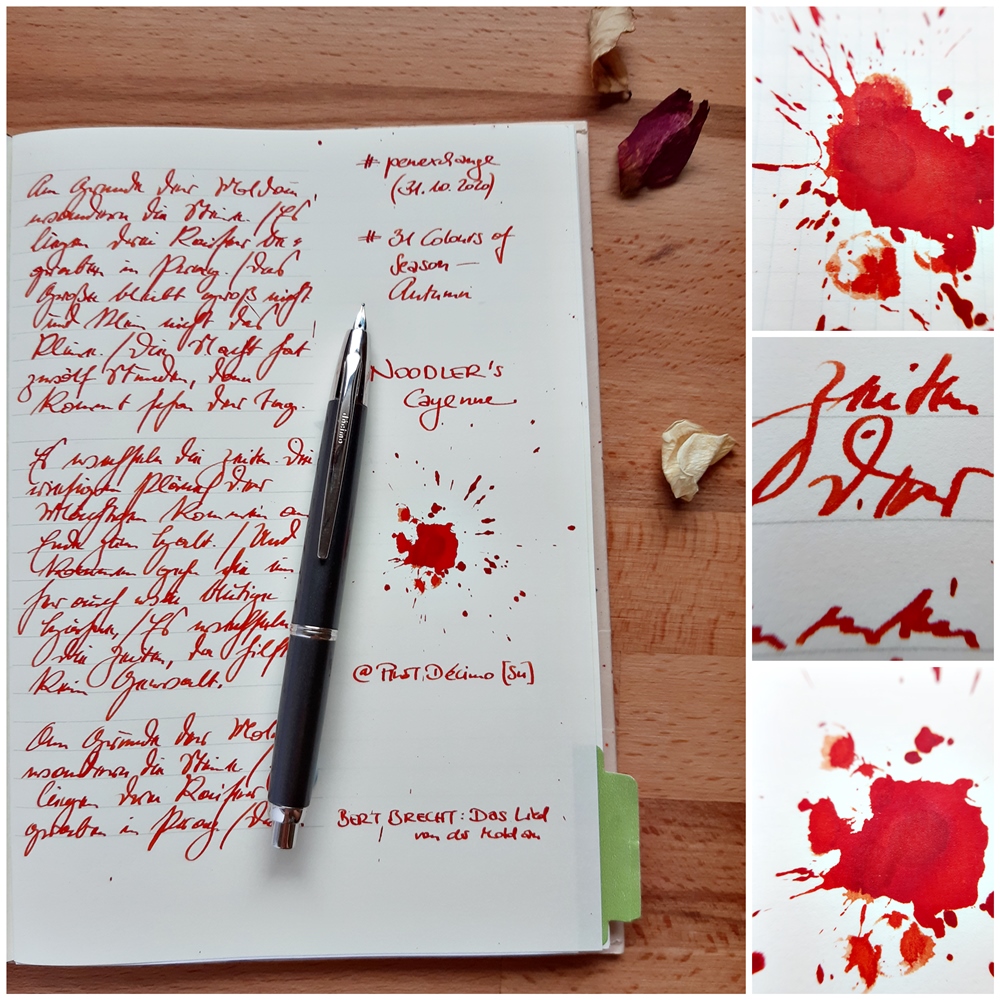 Am Grunde der Moldau
wandern die Steine. / Es
liegen drei Kaiser be=
graben in Prag. / Das
Große bleibt groß nicht
und klein nicht das
Kleine. / Die Nacht hat
zwölf Stunden, dann
kommt schon der Tag.
Es wechseln die Zeiten. Die
riesigen Pläne der
Mächtigen kommen am
Ende zum Halt. / Und
gehn sie ein=
her auch wie blutige
/ Es wechseln
die Zeiten, da hilft
kein Gewalt.
Am Grunde der Mold
wandern die Steine /
liegen drei Kaiser
graben in Prag. / Da
# penexchange
(31. 10. 2020)
# 31 Colours of
Season –
Autumn
NOODLER's
Cayenne
décimo
@ PILOT, Décimo [Su]
BERT BRECHT: Das Lied
von der Moldau
Zeiten
der